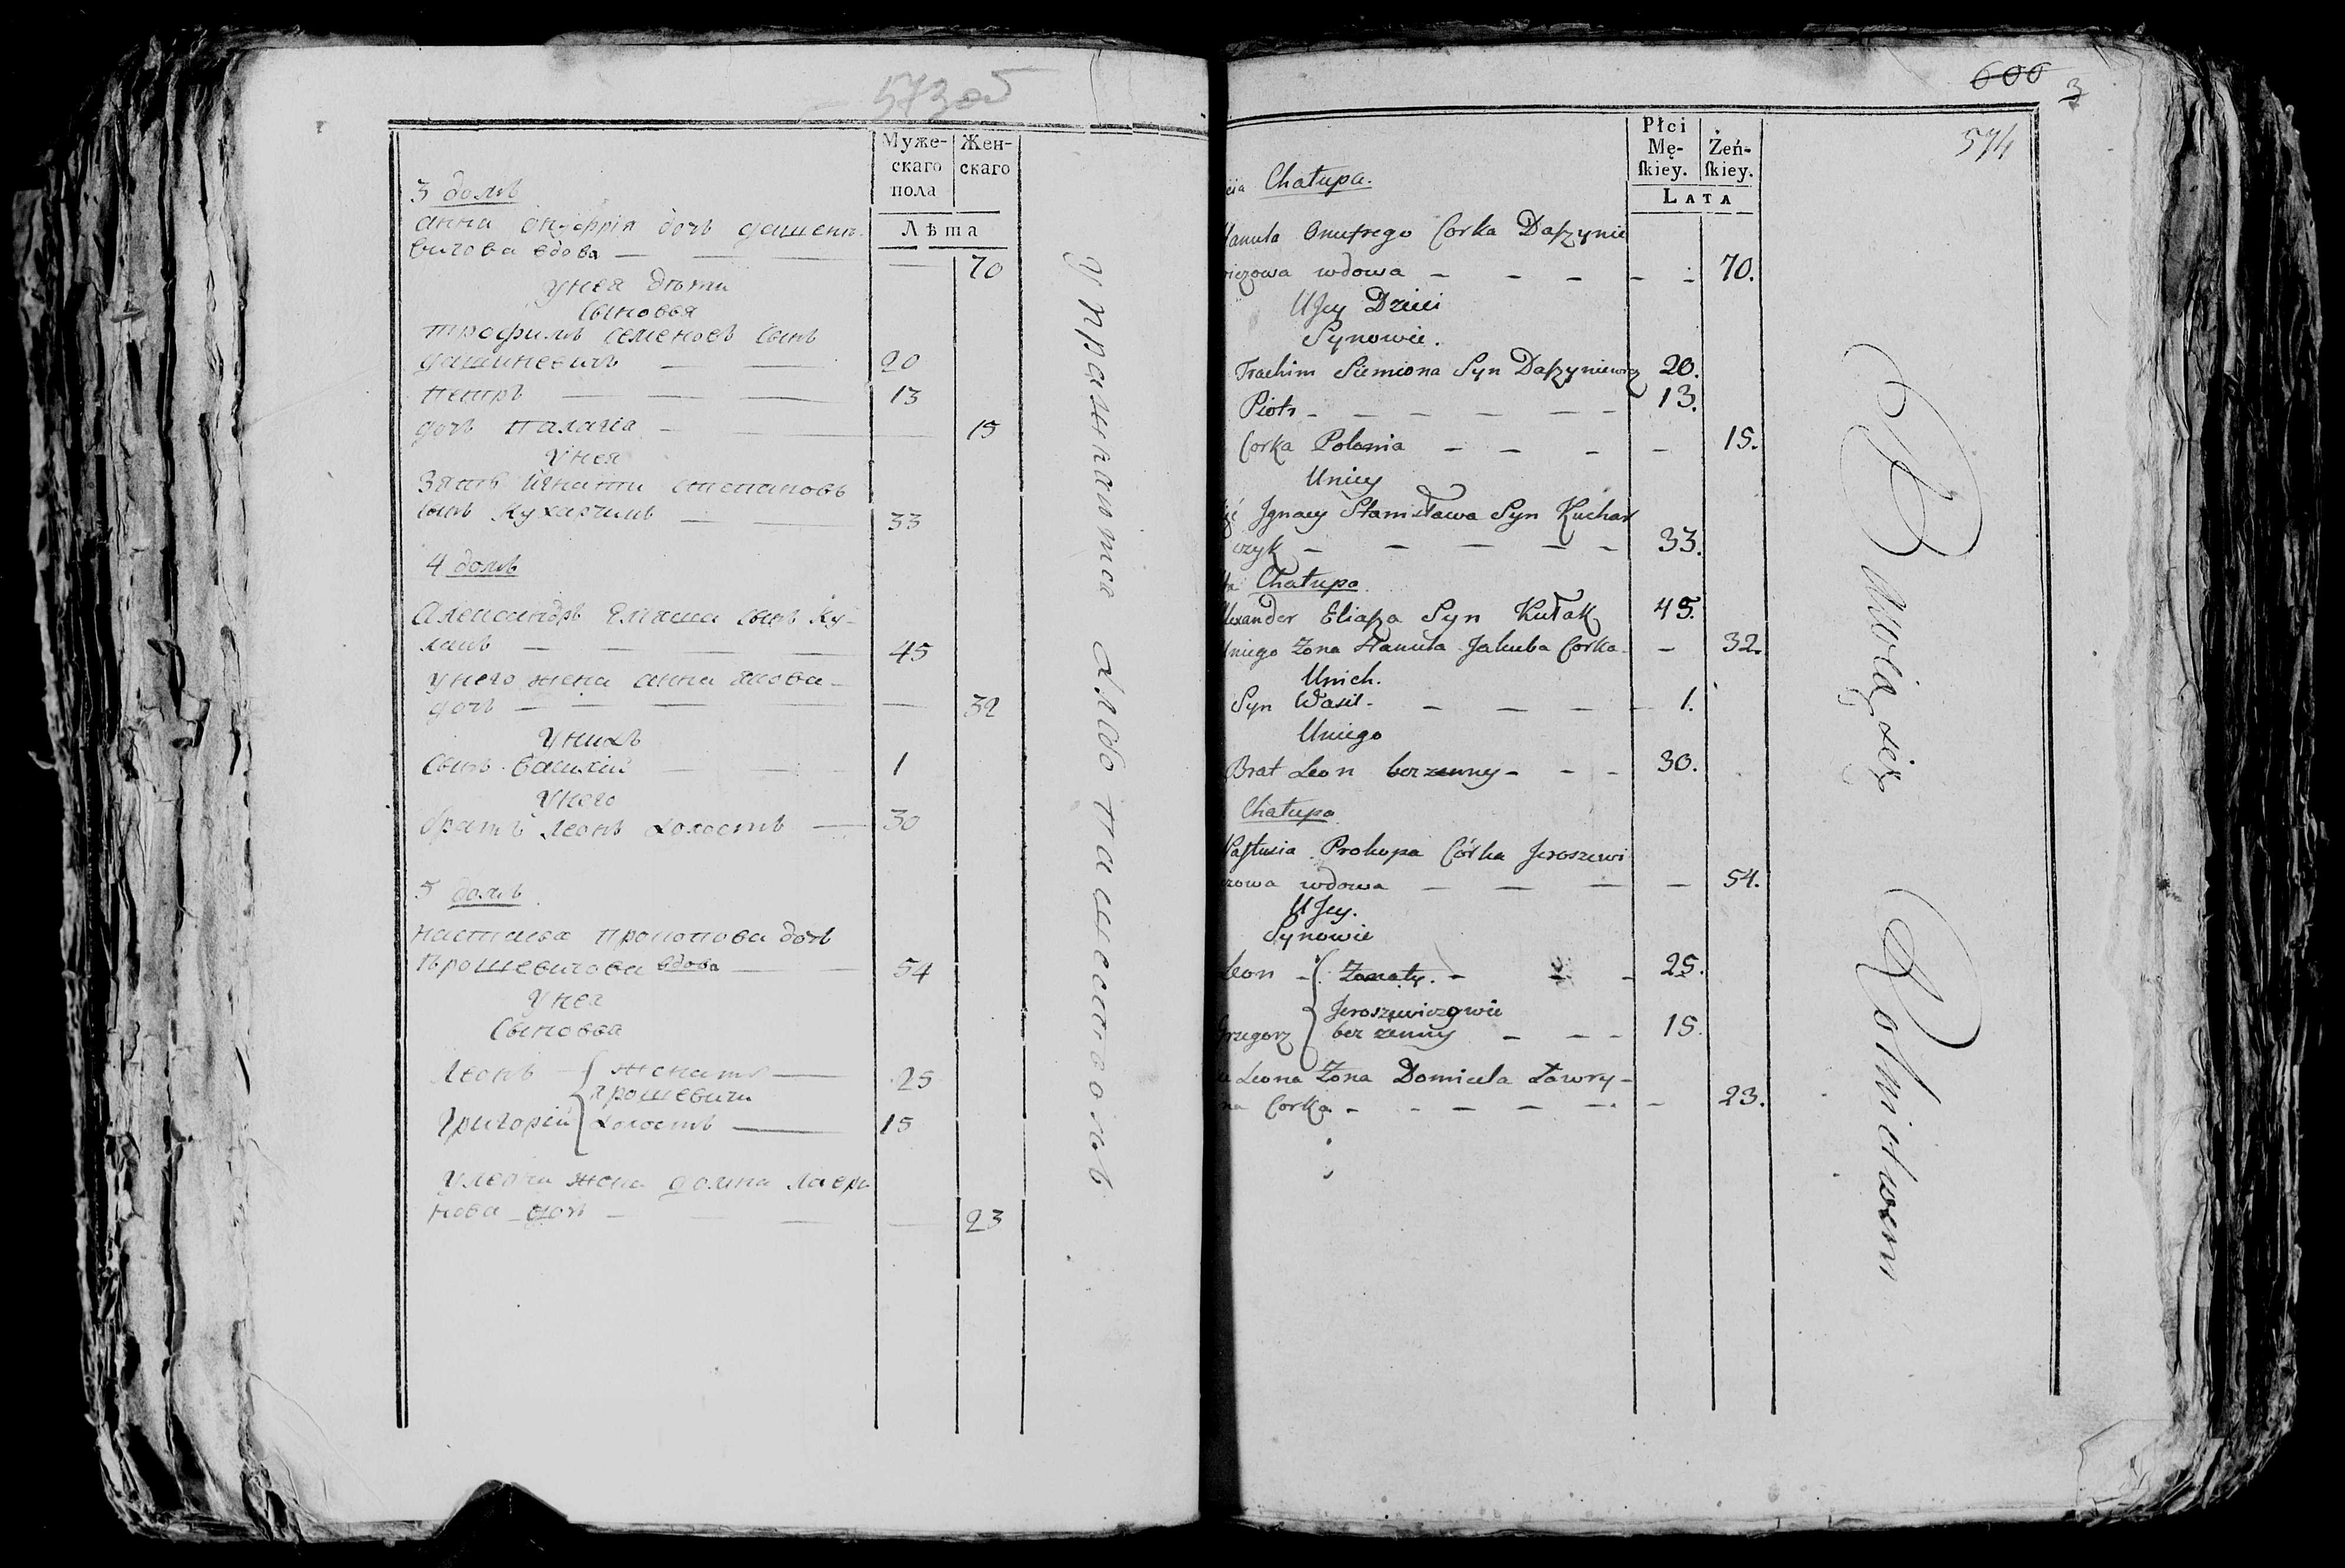 573 об
Муже-
скаго
пола
Жен-
скаго
Лѣта
3 домъ
Анна Онуфрія дочь Дашкне-
вичова вдова — — — — 70
У нея дѣти
Сыновья
Трофимъ Семеновъ сынъ
Дашиневичъ — — 20
Петръ — — — 13
дочь Палагіа — — — 15
У нея
Зять Игнати Степановъ
сынъ Кухарчикъ — — 33
4 домъ
Александръ Еліяша сынъ Ку-
лакъ — — — — 45
У него жена Анна Якова-
дочь — — — — — 32
У нихъ
Сынъ Василій — — — 1
У него
братъ Леонъ холостъ — 30
5 домъ
Настасья Прокопова дочь
Ярошевичова вдова — — 54
У нея
Сыновья
Леонъ — женатъ — 25
Ярошевичи
Григорій холостъ — 15
У Леона жена Домна Лаври
нова дочь — — — — 23
упражняются хлебопашествомъ
600
3
574
Płci
Mę-
skiey.
Żeń-
skiey.
LATA
cia Chałupa.
Hanula Onufrego Corka Daszynie
wiczowa wdowa — — — — — 70.
U Jey Dzieci
Synowie.
Trachim Siemiona Syn Daszyniewicz 20.
Piotr — — — — — — 13.
Corka Polonia — — — — 15.
U niey
Zięć Jgnacy Stanisława Syn Kuchar
czyk — — — — — 33.
ta Chałupa.
Alexander Eliasza Syn Kułak 45.
U niego Zona Hanula Jakuba Corka — — 32.
U nich.
Syn Wasil. — — — — — 1.
U niego
Brat Leon bezzenny — — — 30.
Chałupa
Nastusia Prokopa Córka Jeroszewi
czowa wdowa — — — — 54.
U Jey.
Synowie
Leon — Zonaty. — — — 25.
Jeroszewiczowie
Grzegorz bez żenny — — — 15.
U Leona Zona Domicela Ławry-
na Corka — — — — — — 23.
Bawią się Rolnictwem